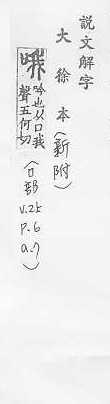 説文解字
大徐本(新附)
哦 吟也从口我
聲五何切
(口部
v.2上
p.6
a.7)